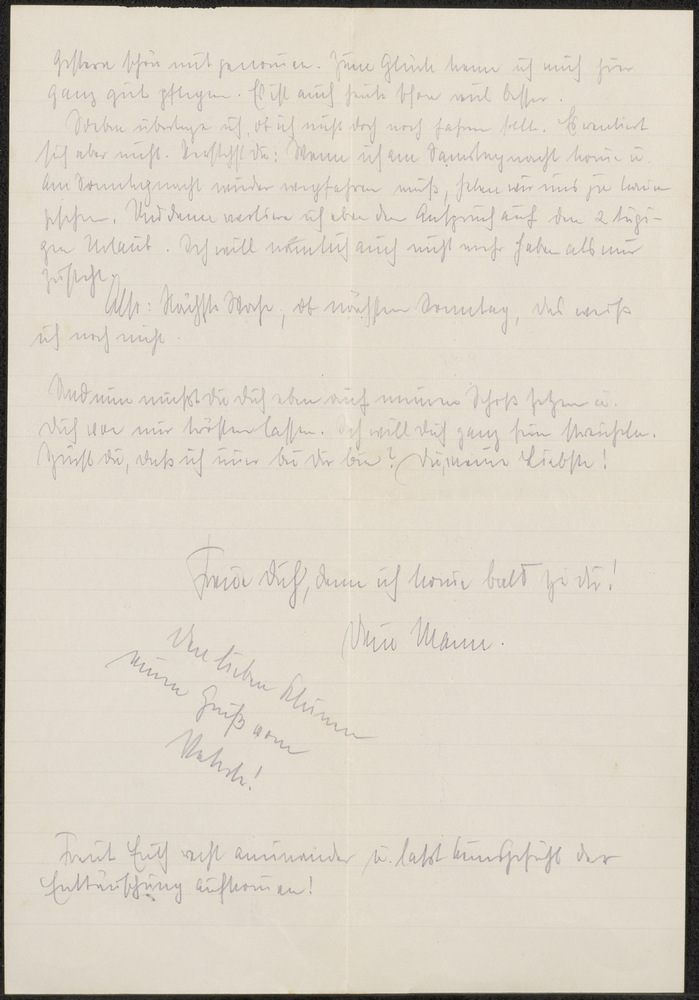 gestern schon mit genommen. Zum Glück kann ich mich hier
ganz gut pflegen. Es ist auch heute schon viel besser.
Soeben überlege ich, ob ich nicht doch noch fahren sollt. Es rentiert
sich aber nicht. Verstehst Du: Wenn ich am Samstag nacht komme u.
am Sonntag nacht wieder wegfahren muß, haben wir uns ja kaum
gesehen. Und dann verliere ich eben den Anspruch auf den 2 tägi-
gen Urlaub. Ich will nämlich auch nicht mehr haben als mir
zusteht.
Also: Nächste Woche, ob nächsten Sonntag, das weiß
ich noch nicht.
Und nun mußt Du Dich eben auf meinen Schoß setzen u.
Dich von mir trösten lassen. Ich will Dich ganz fein streicheln.
Spürst du, daß ich immer bei Dir bin? Du, meine Liebste!
Freue Dich, denn ich komme bald zu dir!
Dein Mann.
Den lieben Kleinen
einen Gruß vom
Vaterle!
Freut Euch recht aneinander u. laßt kein Gefühl der
Enttäuschung aufkommen!